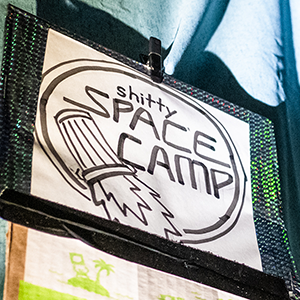 shitty
SPACE
CAMP